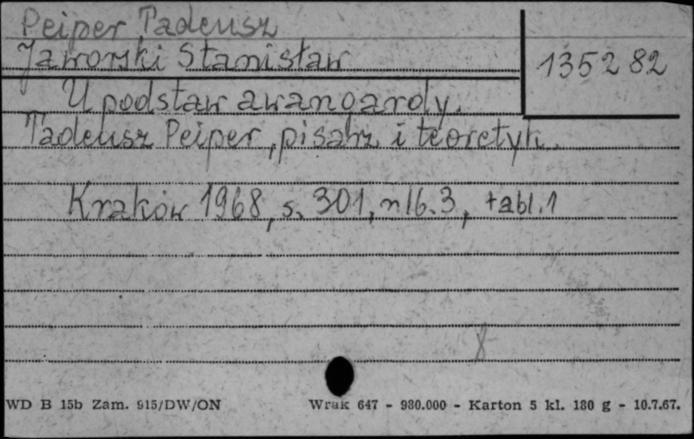 Peiper Tadeusz
Jaworski Stanisław
135282
U podstaw awangardy.
Tadeusz Peiper, pisarz i teoretyk.
Kraków 1968, s. 301, nlb. 3, tabl. 1
8
WD B 15b Zam. 915/DW/ON
Wrak 647 - 980.000 - Karton 5 kl. 180 g - 10.7.67.